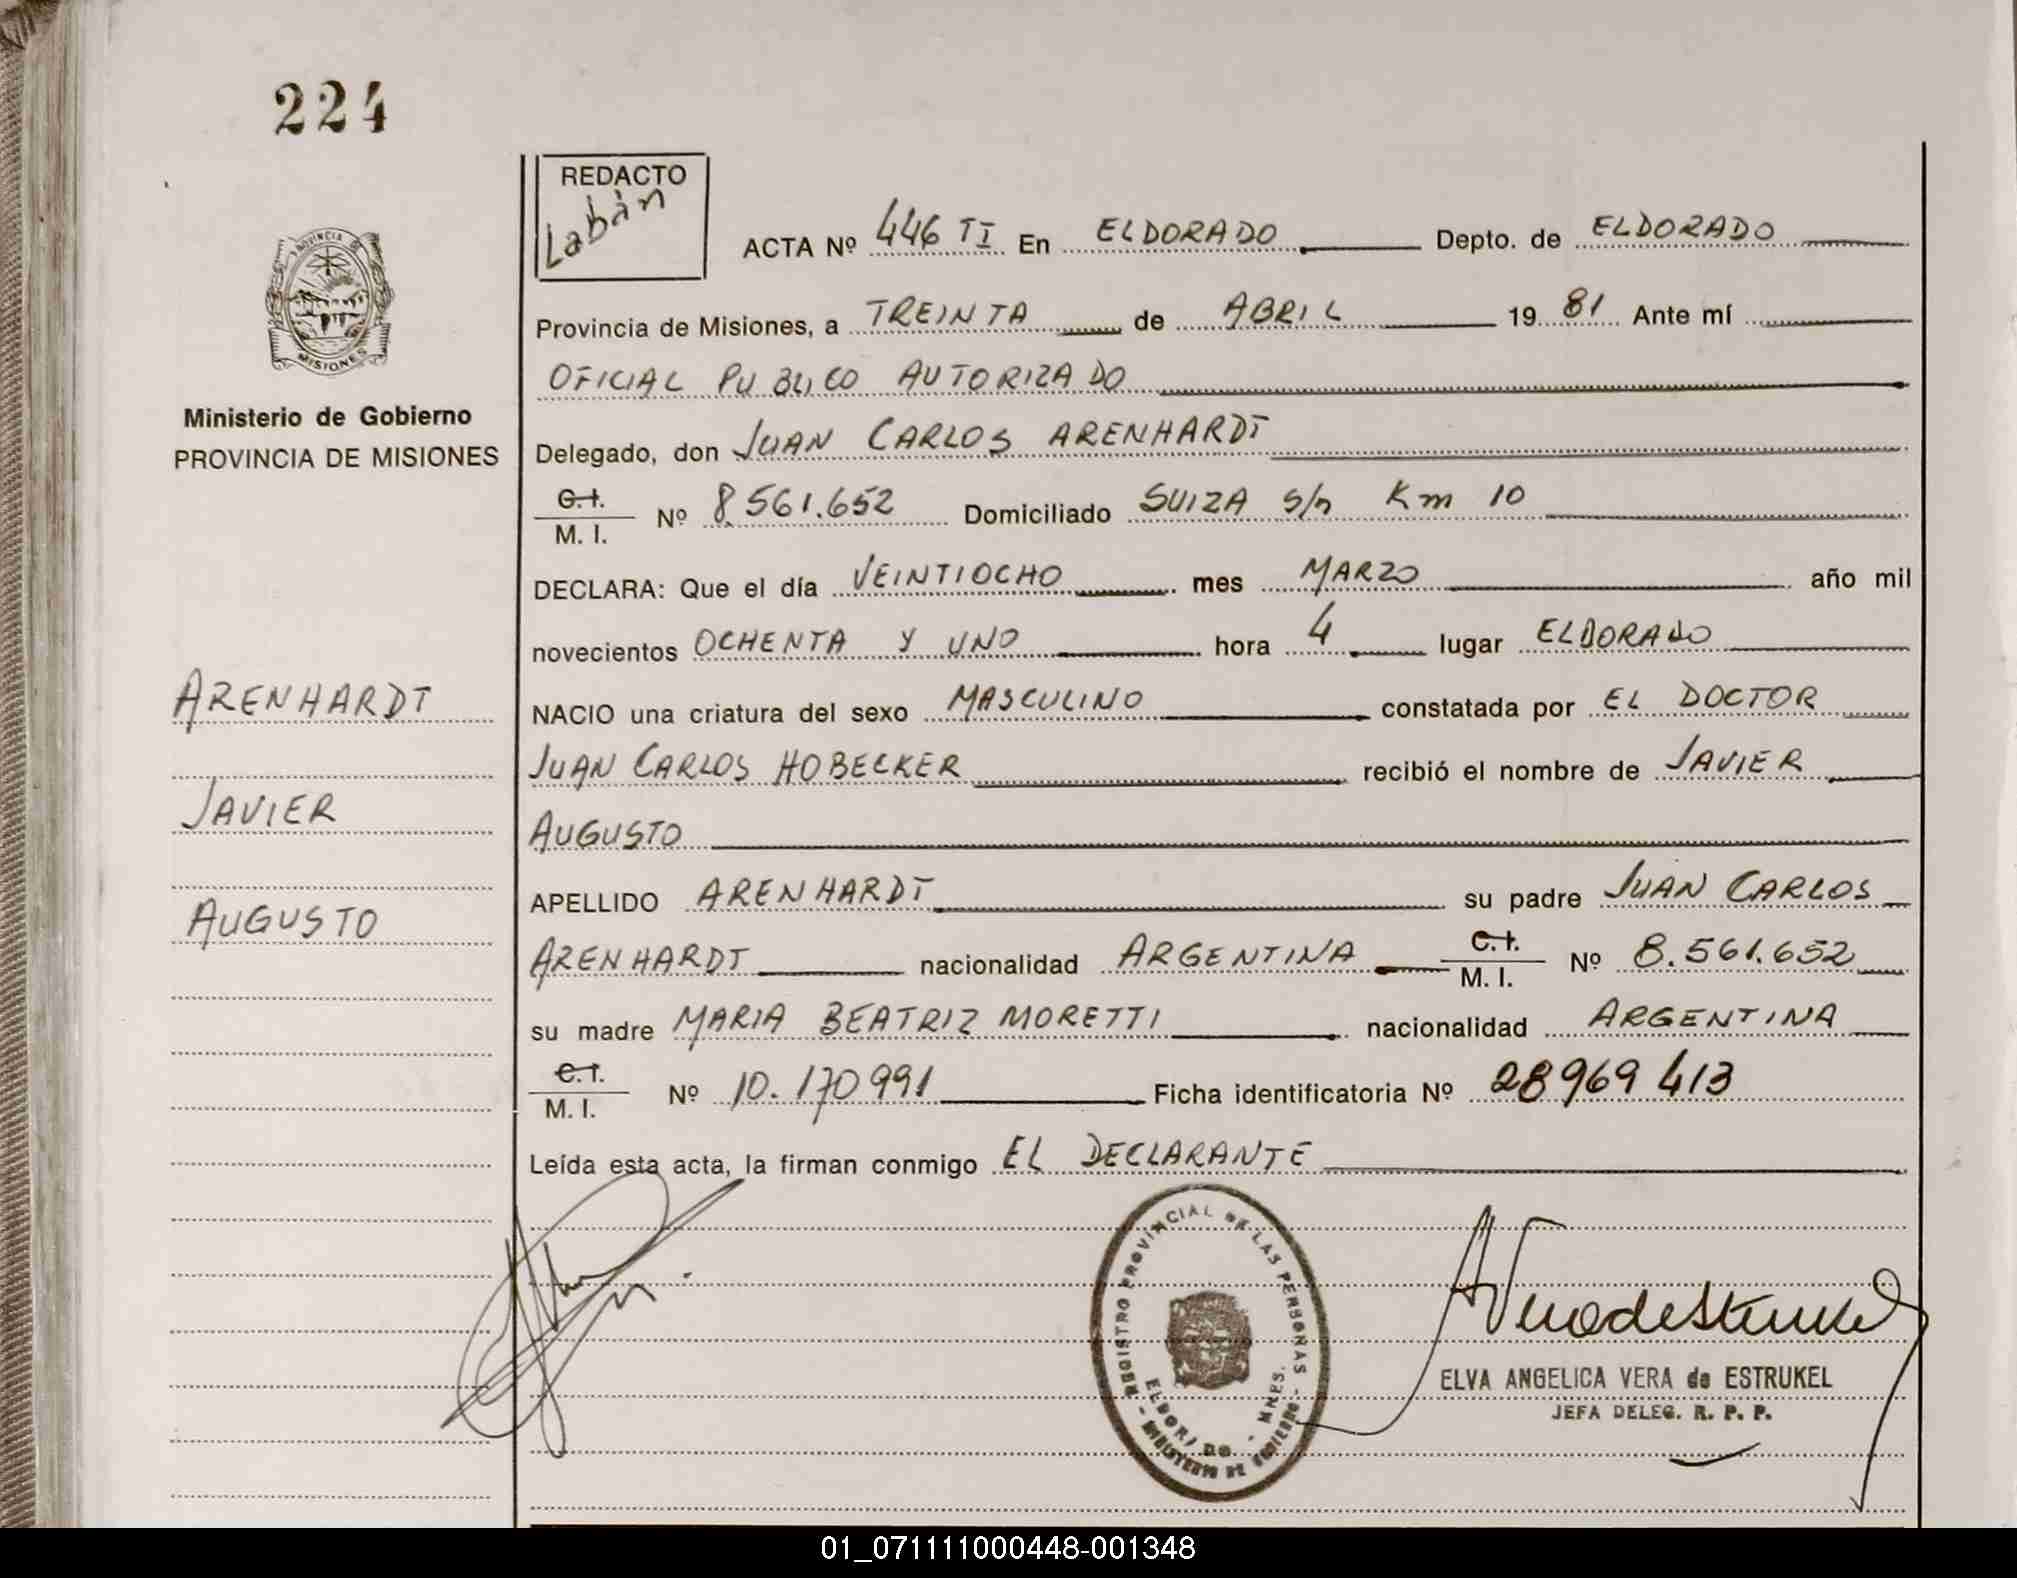 224
REDACTO
Labán
ACTA Nº 446 TI En ELDORADO Depto. de ELDORADO
Provincia de Misiones, a TREINTA de ABRIL 19 81 Ante mí
OFICIAL PUBLICO AUTORIZADO
Ministerio de Gobierno
PROVINCIA DE MISIONES
Delegado, don JUAN CARLOS ARENHARDT
C.I. / M. I. Nº 8.561.652 Domiciliado SUIZA s/n Km 10
DECLARA: Que el día VEINTIOCHO mes MARZO año mil
novecientos OCHENTA Y UNO hora 4 lugar ELDORADO
ARENHARDT
JAVIER
AUGUSTO
NACIO una criatura del sexo MASCULINO constatada por EL DOCTOR
JUAN CARLOS HOBECKER recibió el nombre de JAVIER
AUGUSTO
APELLIDO ARENHARDT su padre JUAN CARLOS
ARENHARDT nacionalidad ARGENTINA C.I. / M. I. Nº 8.561.652
su madre MARIA BEATRIZ MORETTI nacionalidad ARGENTINA
C.I. / M. I. Nº 10.170991 Ficha identificatoria Nº 28969413
Leída esta acta, la firman conmigo EL DECLARANTE
REGISTRO PROVINCIAL DE LAS PERSONAS
ELDORADO - MNES.
- MINISTERIO DE GOBIERNO -
ELVA ANGELICA VERA de ESTRUKEL
JEFA DELEG. R. P. P.
01_071111000448-001348